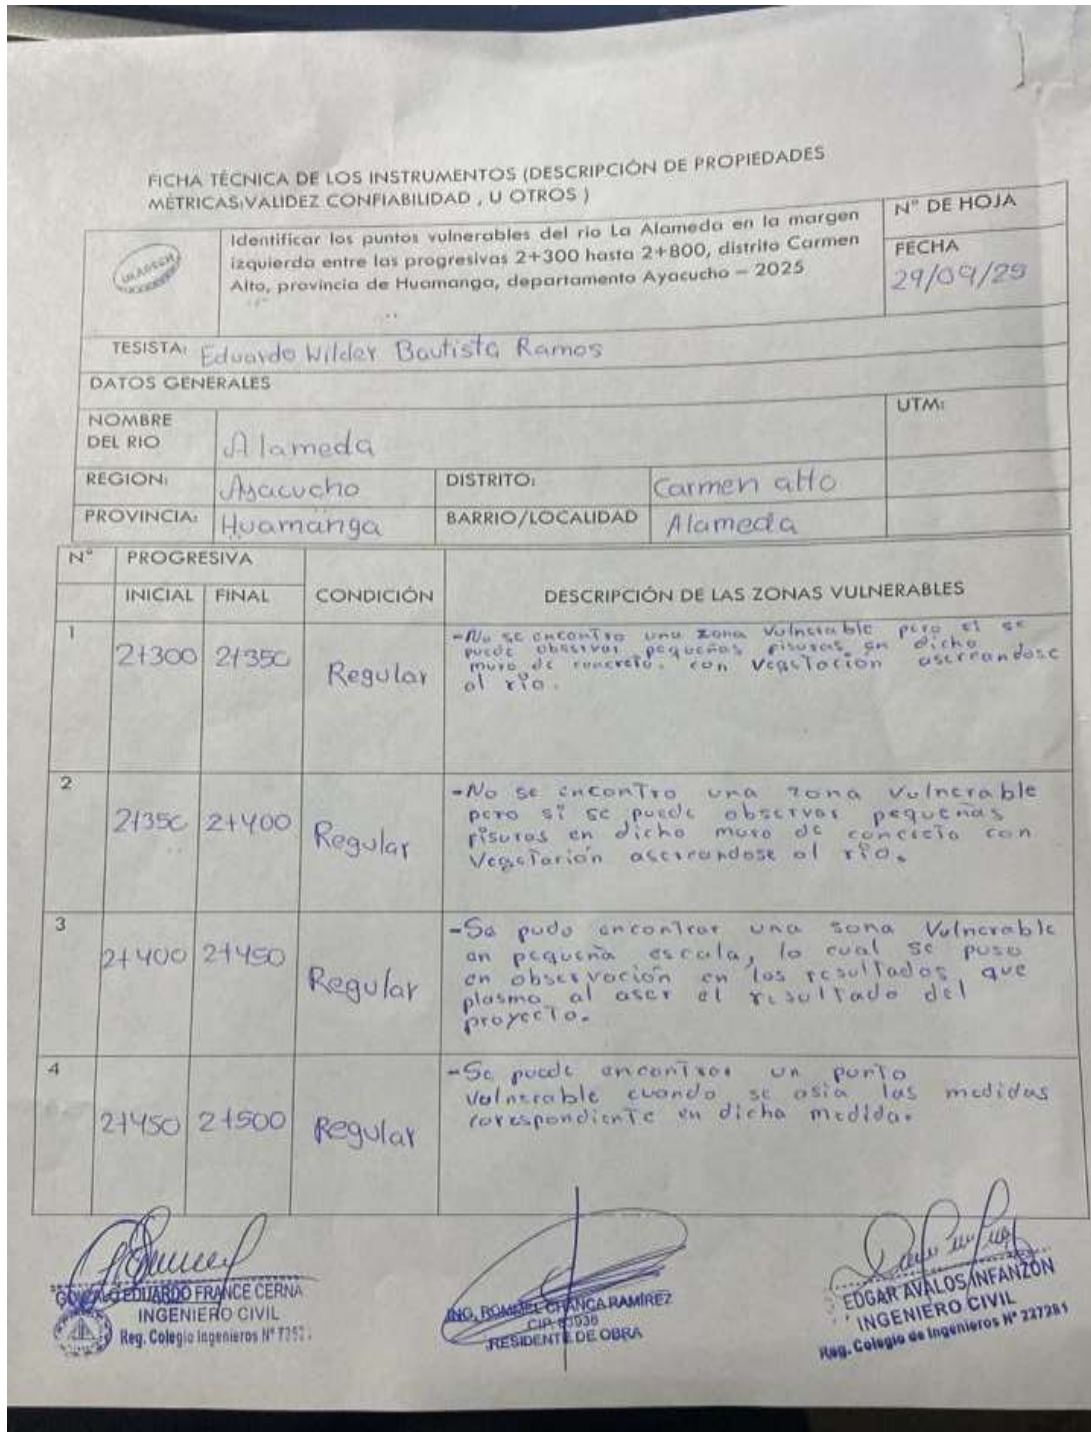 FICHA TÉCNICA DE LOS INSTRUMENTOS (DESCRIPCIÓN DE PROPIEDADES
MÉTRICAS:VALIDEZ CONFIABILIDAD , U OTROS )
Identificar los puntos vulnerables del rio La Alameda en la margen
izquierda entre las progresivas 2+300 hasta 2+800, distrito Carmen
Alto, provincia de Huamanga, departamento Ayacucho – 2025
N° DE HOJA
FECHA
29/09/25
TESISTA: Eduardo Wilder Bautista Ramos
DATOS GENERALES
NOMBRE
DEL RIO
Alameda
UTM:
REGION: Ayacucho DISTRITO: Carmen alto
PROVINCIA: Huamanga BARRIO/LOCALIDAD Alameda
N° PROGRESIVA
INICIAL FINAL CONDICIÓN DESCRIPCIÓN DE LAS ZONAS VULNERABLES
1 2+300 2+350 Regular
-No se encontro una zona Vulnerable pero si se
puede observar pequeñas fisuras en dicho
muro de concreto. con Vegetación asercandose
al río.
2 2+350 2+400 Regular
-No se encontro una zona Vulnerable
pero si se puede observar pequeñas
fisuras en dicho muro de concreto con
Vegetación asercandose al río.
3 2+400 2+450 Regular
-Se pudo encontrar una sona Vulnerable
en pequeña escala, lo cual se puso
en observación en los resultados que
plasmo al aser el resultado del
proyecto.
4 2+450 2+500 Regular
-Se puede encontrar un punto
Vulnerable cuando se asia las medidas
corespondiente en dicha medida.
EDUARDO FRANCE CERNA
INGENIERO CIVIL
Reg. Colegio Ingenieros N°
ING. ROMMEL CHANCA RAMÍREZ
CIP.
RESIDENTE DE OBRA
EDGAR AVALOS INFANZÓN
INGENIERO CIVIL
Reg. Colegio de Ingenieros N° 237281